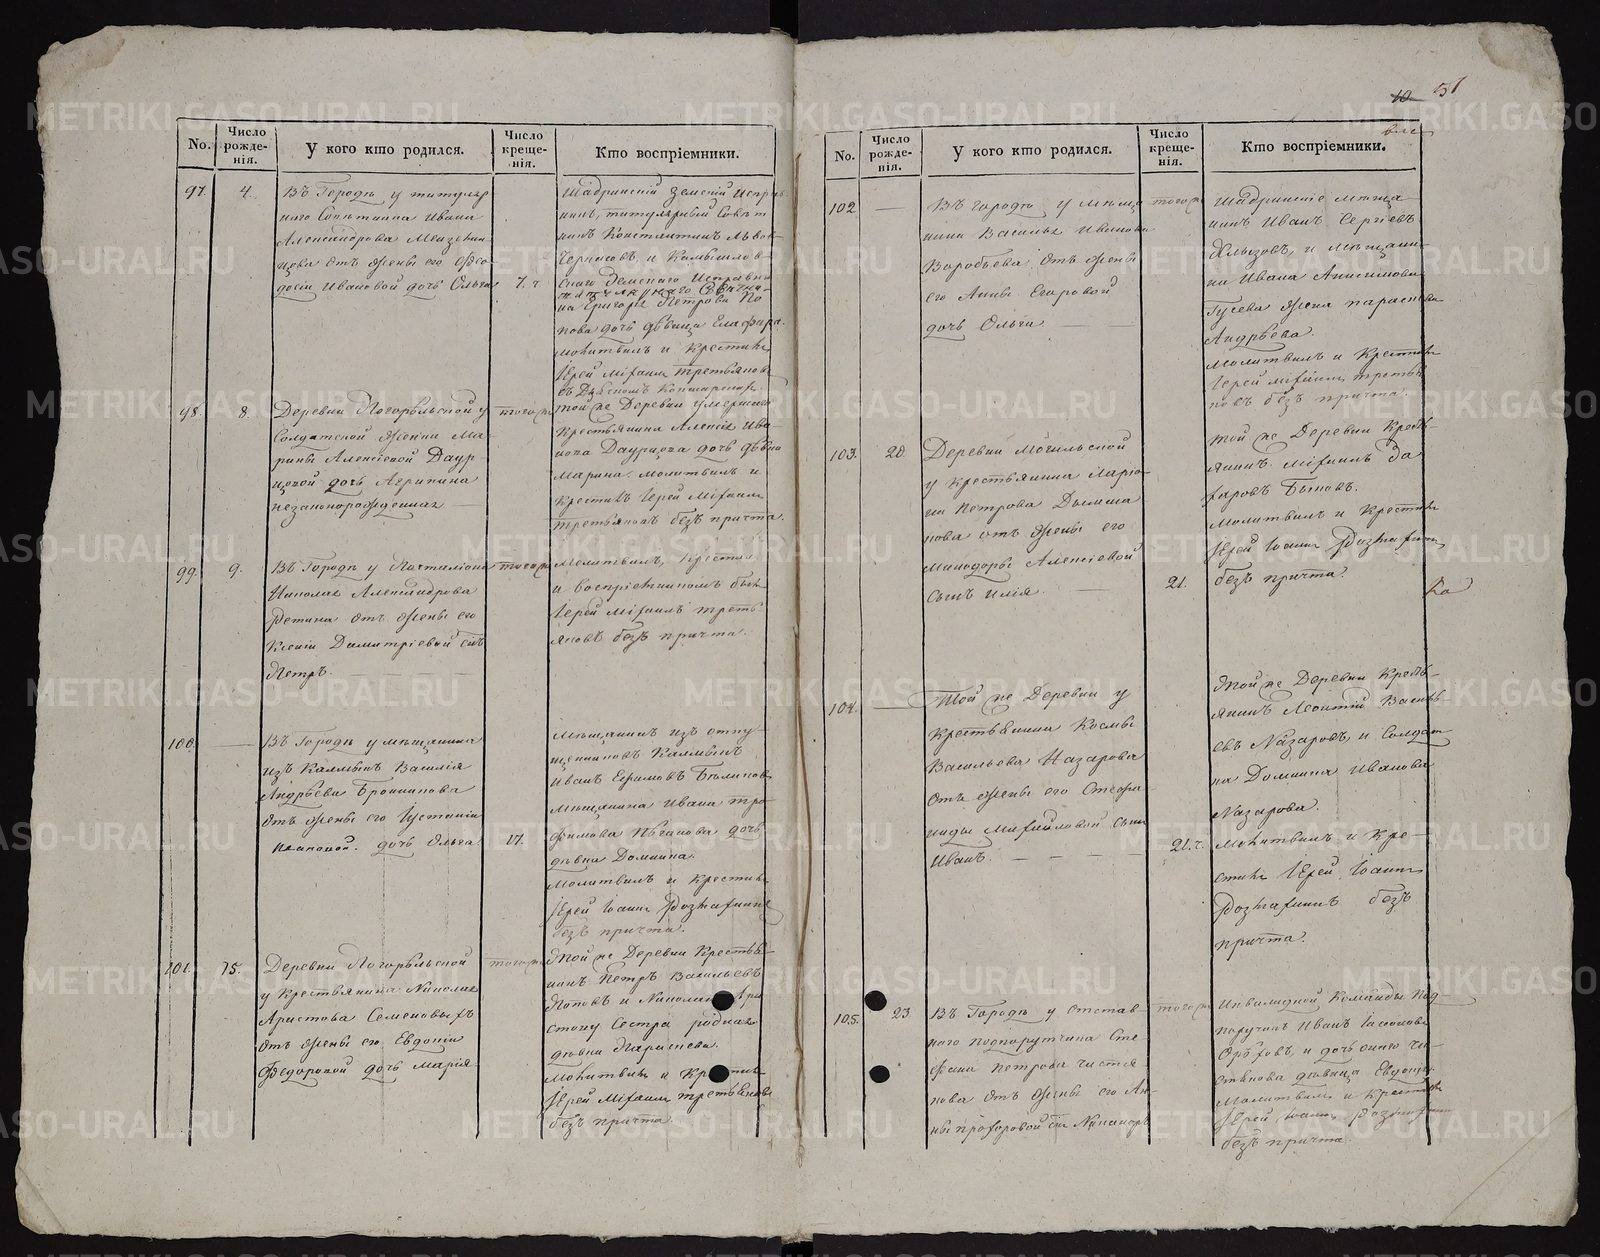 10 51
No.
Число рожде-нія.
У кого кто родился.
Число креще-нія.
Кто воспріемники.
97. 4.
Въ Городѣ у титуляр
наго Совѣтника Ивана
Александрова
цова отъ жены его Ѳео
досіи Ивановой дочь Ольга
7. ч.
Шадринскій Земскій Исправ
никъ, титулярный Совѣт
никъ Константинъ Львов
Черкасовъ, и Камышлов
скаго Земскаго Исправни
ка титулярнаго Совѣтни
ка Григорья Петрова По
пова дочь дѣвица
молитвилъ и крестилъ
Іерей Михаилъ Третьяковъ
съ
98. 8.
Деревни Погорѣльской у
Солдатской женки Ма
рины Алексіевой Даур
цовой дочь Агрипина
незаконорожденная
того же
той же Деревни умершаго
крестьянина Алексія Ива
нова Даурцова дочь дѣвка
Марина. молитвилъ и
крестилъ Іерей Михаилъ
Третьяковъ безъ причта.
99. 9.
Въ Городѣ у Почталіона
Николая Александрова
Ретина отъ жены его
Ксеніи Димитріевой сынъ
Петръ.
того же
Молитвилъ, крестилъ
и воспріемникомъ былъ
Іерей Михаилъ Треть
яковъ безъ причта.
100. —
Въ Городѣ у мѣщанина
изъ Калмыкъ Василія
Андрѣева Бронникова
отъ жены его Іустиніи
дочь Ольга.
17.
Мѣщанинъ изъ отпу
щенниковъ Калмыкъ
Иванъ Ефимовъ Бѣликовъ
Мѣщанина Ивана Тро
фимова дочь
дѣвка Домнина.
Молитвилъ и крестилъ
Іерей Іоаннъ
безъ причта.
101. 15.
Деревни Погорѣльской
у Крестьянина Николая
Аристова Семеновыхъ
отъ жены его Евдокіи
Ѳедоровой дочь Марія.
того же
Той же Деревни Крестья
нинъ Петръ Васильевъ
Поповъ и Николая Ари
стову Сестра родная
дѣвка
Молитвилъ и Крестилъ
Іерей Михаилъ Третьяковъ
безъ причта.
No.
Число рожде-нія.
У кого кто родился.
Число креще-нія.
Кто воспріемники.
102 —
Въ городѣ у мѣща
нина Василья Иванова
Воробьева, отъ жены
его Анны Егоровой
дочь Ольга
того же
Шадринскіе мѣща
нинъ Иванъ Сергѣевъ
Хлызовъ, и мѣщани
на Ивана Анисимова
Гусева жена параскева
Андрѣева.
молитвилъ и крестилъ
Іерей Михаилъ Третья
ковъ безъ причта.
103. 20.
Деревни Могильской
у Крестьянина
Петрова Дымша
кова отъ жены его
Минодоры Алексіевой
сынъ Илія.
21.
той же Деревни Кресть
янинъ Михаилъ За
харовъ Быковъ.
молитвилъ и Крестилъ
Іерей Іоаннъ
безъ причта.
104. —
Той же Деревни у
крестьянина Космы
Васильева Назарова
отъ жены его Стефа
ниды Михайловой сынъ
Иванъ.
21. ч.
Той же Деревни Кресть
янинъ Леонтій Василь
евъ Назаровъ, и Солдат
ка Домнина Иванова
Назарова.
Молитвилъ и Кре
стилъ Іерей Іоаннъ
безъ
причта.
105. 23
Въ Городѣ у отстав
наго подпорутчика Сте
фана Петрова Чистя
кова отъ жены его Ан
ны прохоровой сынъ Никаноръ
того же
Инвалидной Команды Под
поручикъ Иванъ
Орѣховъ, и дочь онаго Чи
стякова дѣвица Евдокія
молитвилъ и крестилъ
Іерей Іоаннъ
безъ причта.
METRIKI.GASO-URAL.RU